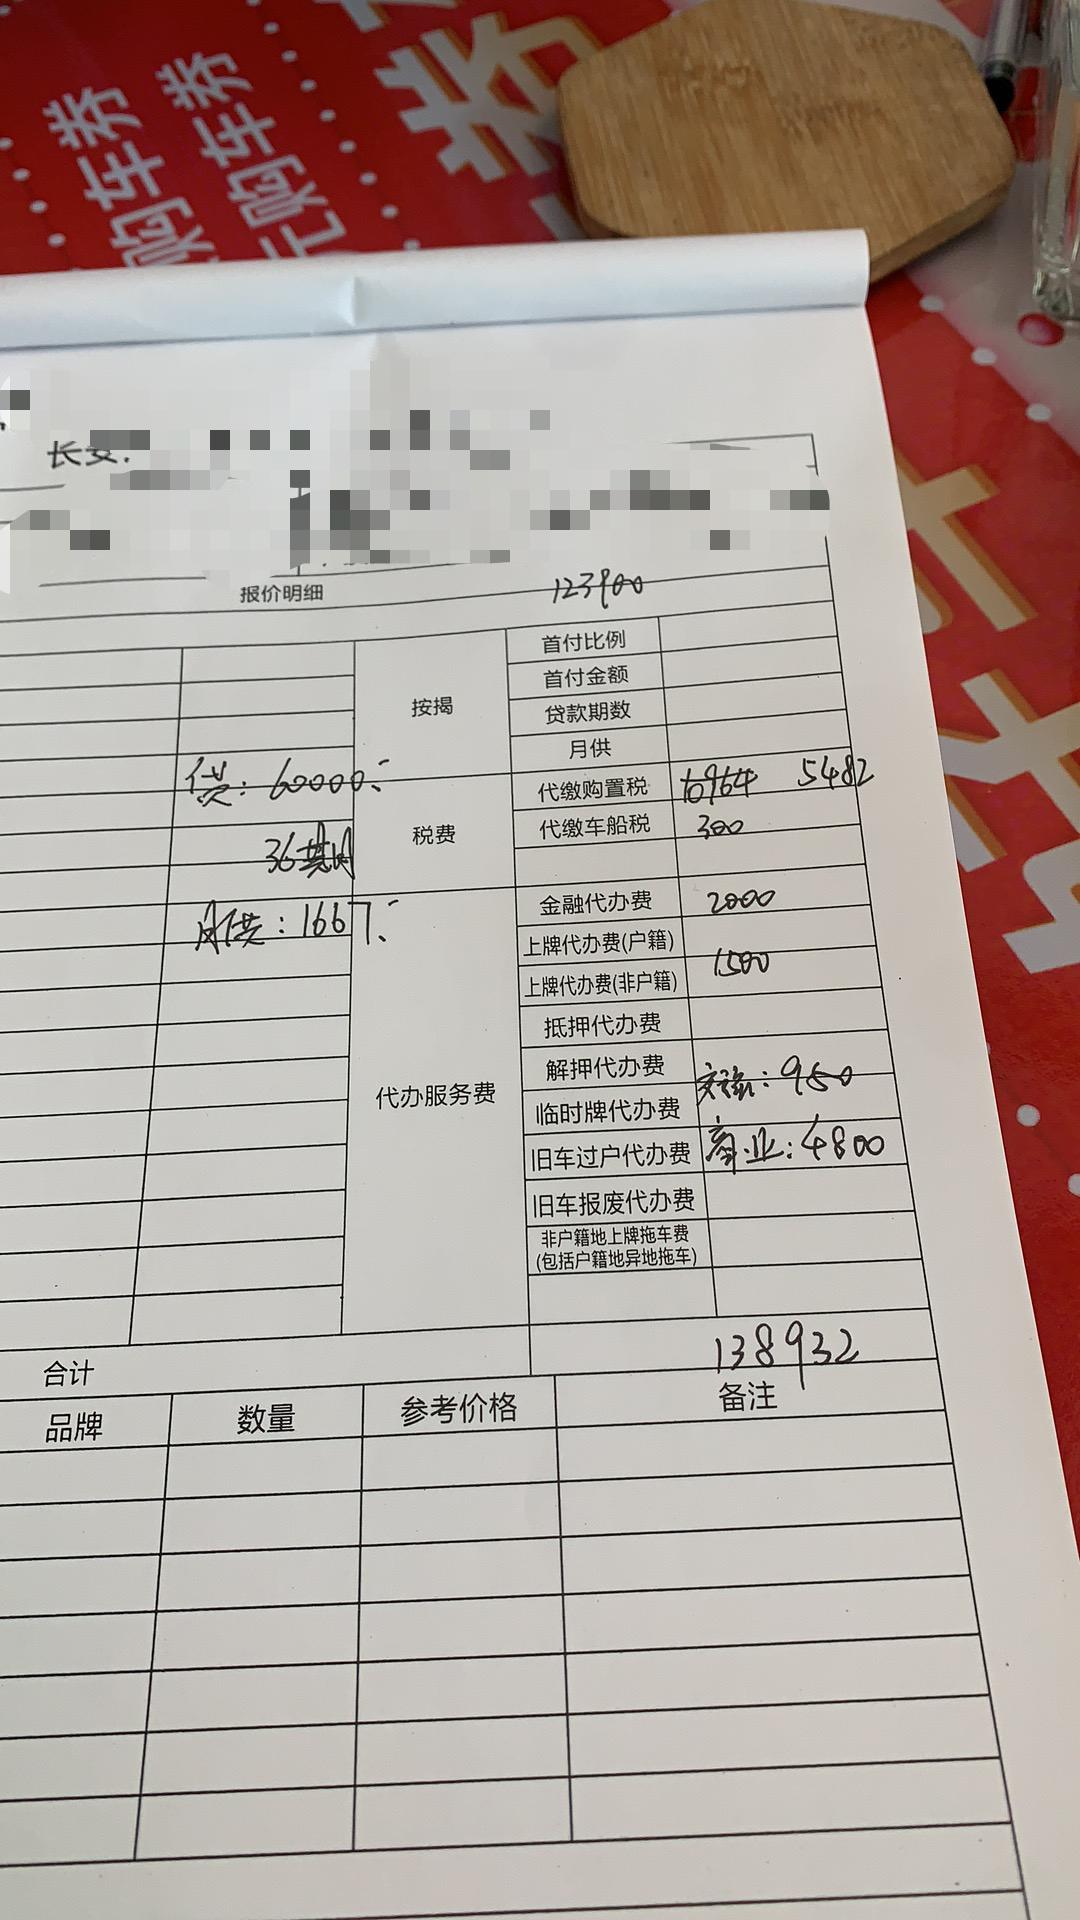 购车券
元购车券
券
长安:
报价明细
123900
按揭
首付比例
首付金额
贷款期数
月供
贷: 60000.-
36期
月供: 1667.-
税费
代缴购置税 10964 5482
代缴车船税 300
代办服务费
金融代办费 2000
上牌代办费(户籍)
1500
上牌代办费(非户籍)
抵押代办费
解押代办费
交强: 950
临时牌代办费
旧车过户代办费 商业: 4800
旧车报废代办费
非户籍地上牌拖车费
(包括户籍地异地拖车)
合计 138932
品牌 数量 参考价格 备注